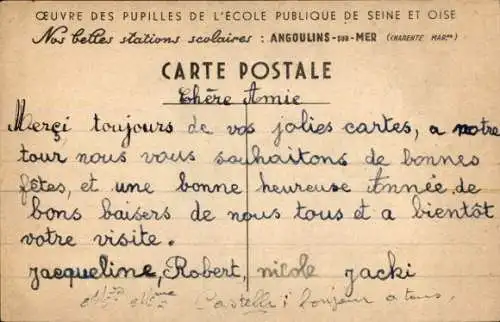 ŒUVRE DES PUPILLES DE L'ÉCOLE PUBLIQUE DE SEINE ET OISE
Nos belles stations scolaires : ANGOULINS-SUR-MER (CHARENTE MARme)
CARTE POSTALE
Chère Amie
Merçi toujours de vos jolies cartes, a notre
tour nous vous souhaitons de bonnes
fêtes, et une bonne heureuse Année, de
bons baisers de nous tous et a bientôt
votre visite.
Jacqueline, Robert, nicole Jacki
bonjour a tous,